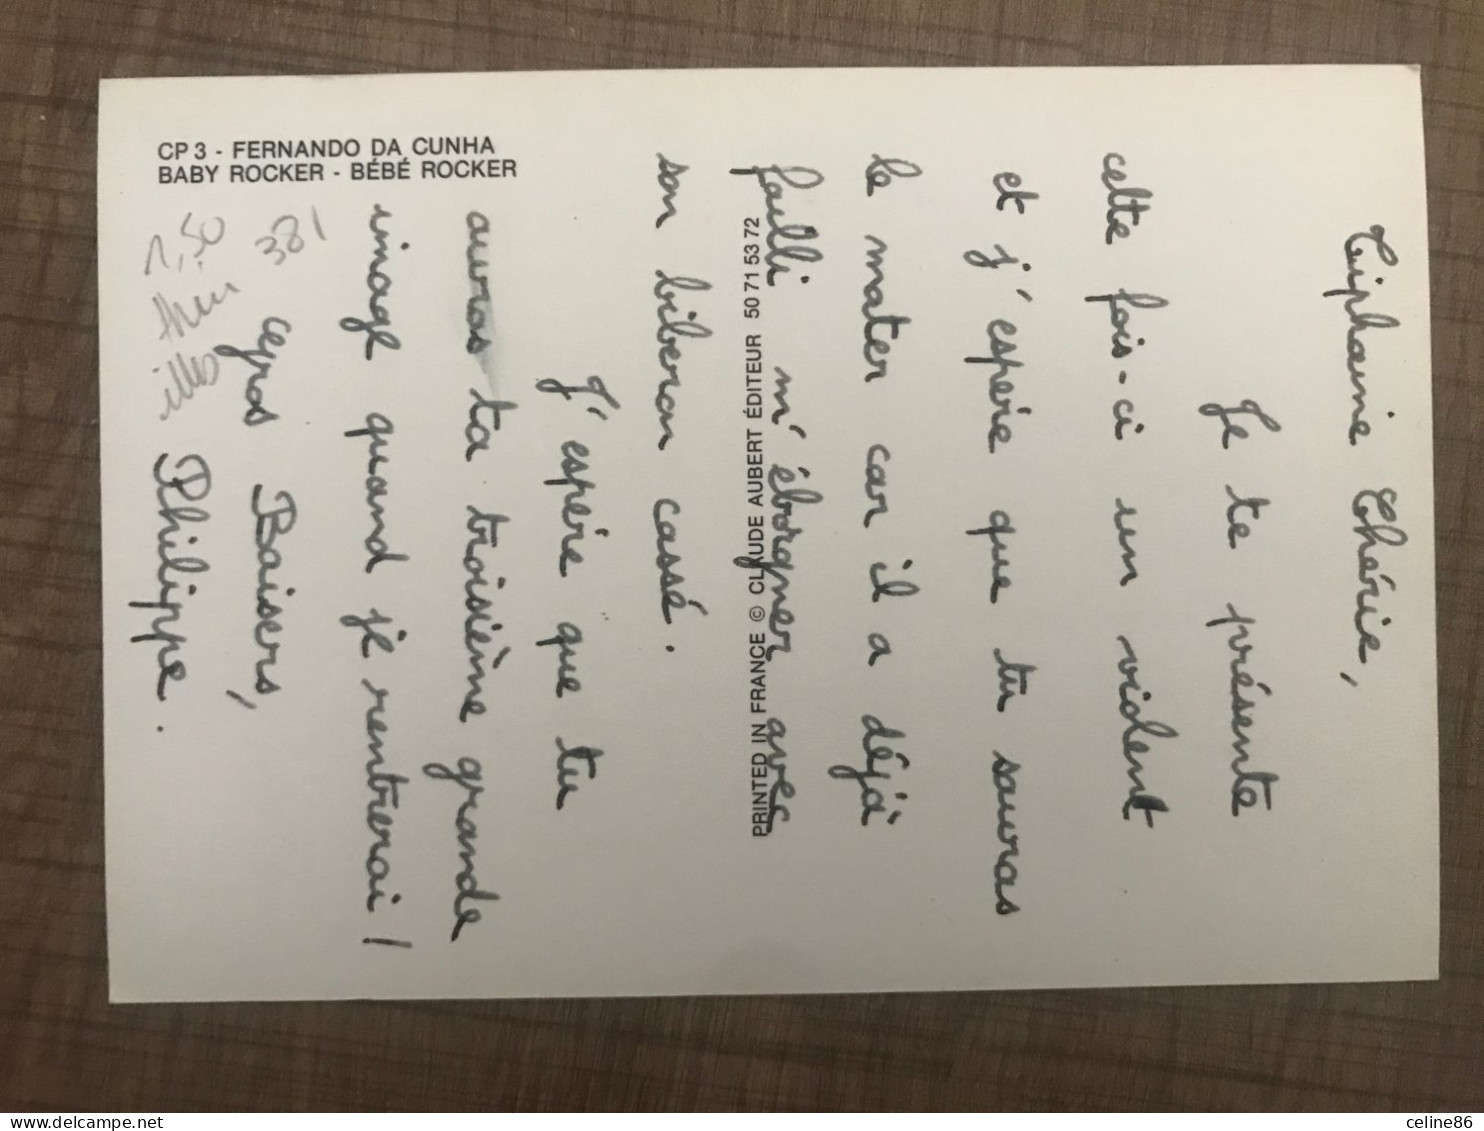 CP 3 - FERNANDO DA CUNHA
BABY ROCKER - BÉBÉ ROCKER
Tiphaine Chérie,
Je te présente
cette fois-ci un violent
et j'espère que tu sauras
le mater car il a déjà
failli m'éborgner avec
son biberon cassé.
J'espère que tu
auras ta troisième grande
image quand je rentrerai!
Baisers,
Philippe.
PRINTED IN FRANCE © CLAUDE AUBERT ÉDITEUR 50 71 53 72
381
1,50
delcampe.net
celine86